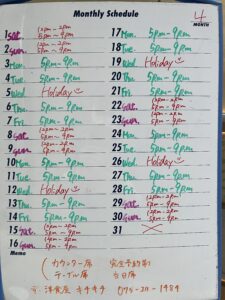 Monthly Schedule
4
MONTH
1 Sat. 12pm - 2pm
5pm - 9pm
2 Sun. 12pm - 2pm
5pm - 9pm
3 Mon. 5pm - 9pm
4 Tue. 5pm - 9pm
5 Wed. Holiday
6 Thu. 5pm - 9pm
7 Fri. 5pm - 9pm
8 Sat. 12pm - 2pm
5pm - 9pm
9 Sun. 12pm - 2pm
5pm - 9pm
10 Mon. 5pm - 9pm
11 Tue. 5pm - 9pm
12 Wed. Holiday
13 Thu. 5pm - 9pm
14 Fri. 5pm - 9pm
15 Sat. 12pm - 2pm
5pm - 9pm
16 Sun. 12pm - 2pm
5pm - 9pm
17 Mon. 5pm - 9pm
18 Tue. 5pm - 9pm
19 Wed. Holiday
20 Thu. 5pm - 9pm
21 Fri. 5pm - 9pm
22 Sat. 12pm - 2pm
5pm - 9pm
23 Sun. 12pm - 2pm
5pm - 9pm
24 Mon. 5pm - 9pm
25 Tue. 5pm - 9pm
26 Wed. Holiday
27 Thu. 5pm - 9pm
28 Fri. 5pm - 9pm
29 Sat. 12pm - 2pm
5pm - 9pm
30 Sun. 12pm - 2pm
5pm - 9pm
31
Memo
カウンター席 完全予約制
テーブル席 当日席
洋食屋 キチキチ 075-211-1484